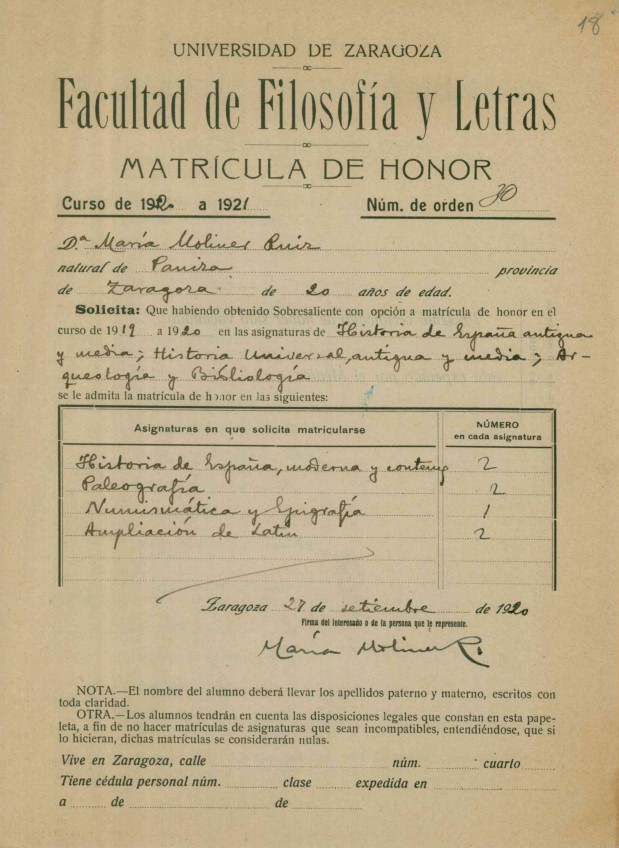 18
UNIVERSIDAD DE ZARAGOZA
Facultad de Filosofía y Letras
MATRÍCULA DE HONOR
Curso de 1920 a 1921 Núm. de orden 30
D.ª María Moliner Ruiz
natural de Paniza provincia
de Zaragoza de 20 años de edad.
Solicita: Que habiendo obtenido Sobresaliente con opción a matrícula de honor en el
curso de 1919 a 1920 en las asignaturas de Historia de España antigua
y media; Historia Universal, antigua y media; Ar-
queología y Bibliología
se le admita la matrícula de honor en las siguientes:
Asignaturas en que solicita matricularse NÚMERO
en cada asignatura
Historia de España, moderna y contemp 2
Paleografía 2
Numismática y Epigrafía 1
Ampliación de Latin 2
Zaragoza 27 de setiembre de 1920
Firma del interesado o de la persona que le represente.
María Moliner R.
NOTA.—El nombre del alumno deberá llevar los apellidos paterno y materno, escritos con
toda claridad.
OTRA.—Los alumnos tendrán en cuenta las disposiciones legales que constan en esta pape-
leta, a fin de no hacer matrículas de asignaturas que sean incompatibles, entendiéndose, que si
lo hicieran, dichas matrículas se considerarán nulas.
Vive en Zaragoza, calle núm. cuarto
Tiene cédula personal núm. clase expedida en
a de de